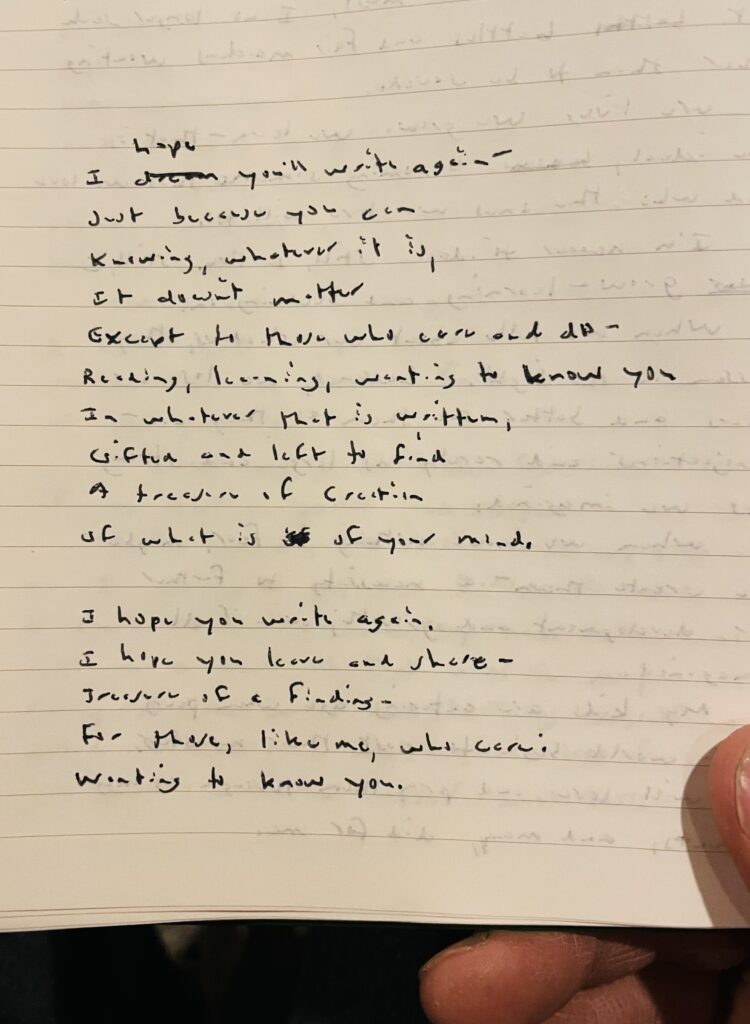 hope
I dream you'll write again—
Just because you can
Knowing, whatever it is,
It doesn't matter
Except to those who care and do—
Reading, learning, wanting to know you
In whatever that is written,
Gifted and left to find
A treasure of Creation
of what is of your mind.
I hope you write again.
I hope you leave and share—
Treasure of a finding—
For those, like me, who care:
Wanting to know you.